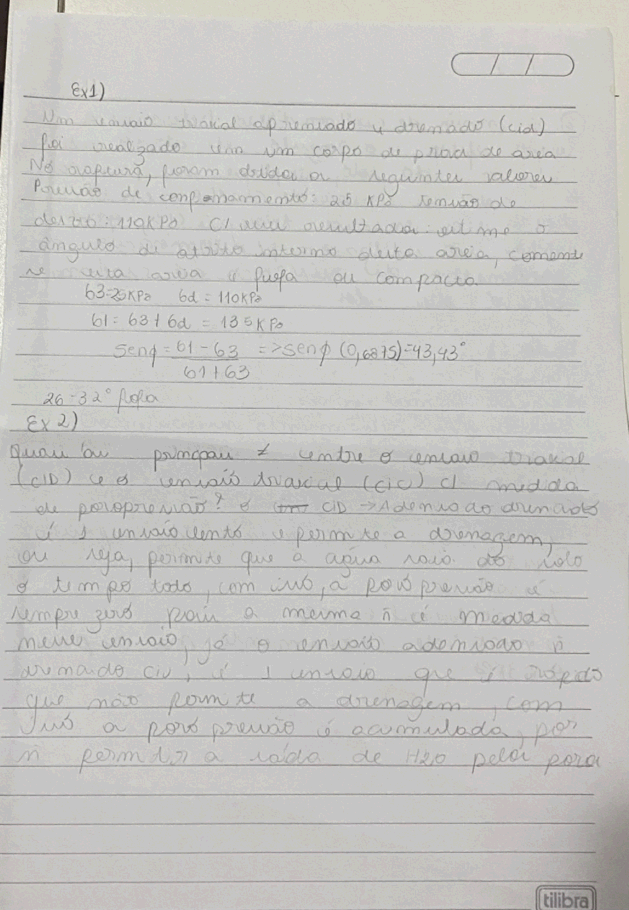 Ex1)
Um ensaio triaxial apremiado e drenado (cid)
foi realizado em um corpo de prova de areia
Na ruptura, foram obtidos os seguintes valores
Pressão de confinamento: 25 KPa Tensão de
desvio: 110KPa C/ esses resultados estime o
ângulo de atrito interno desta areia, comente
se esta areia é fofa ou compacta
63=25KPa 6d = 110KPa
61 = 63 + 6d = 135KPa
Senϕ = 61 - 63 / 61 + 63 => senϕ (0,6875) = 43,43°
26-32° fofa
Ex 2)
Quais as principais ≠ entre o ensaio triaxial
(CID) e o ensaio triaxial (CIC) c/ medida
de poropressão? o CID → Adensado drenado
é 1 ensaio lento e permite a drenagem,
ou seja, permite que a água saia do solo
o tempo todo, com isso, a poro pressão é
sempre zero pois a mesma ñ é medida
nesse ensaio, já o ensaio adensado ñ
drenado CIU, é 1 ensaio que é rápido
que não permite a drenagem, com
isso a poro pressão é acumulada, por
ñ permitir a saída de H2O pelos poros
tilibra